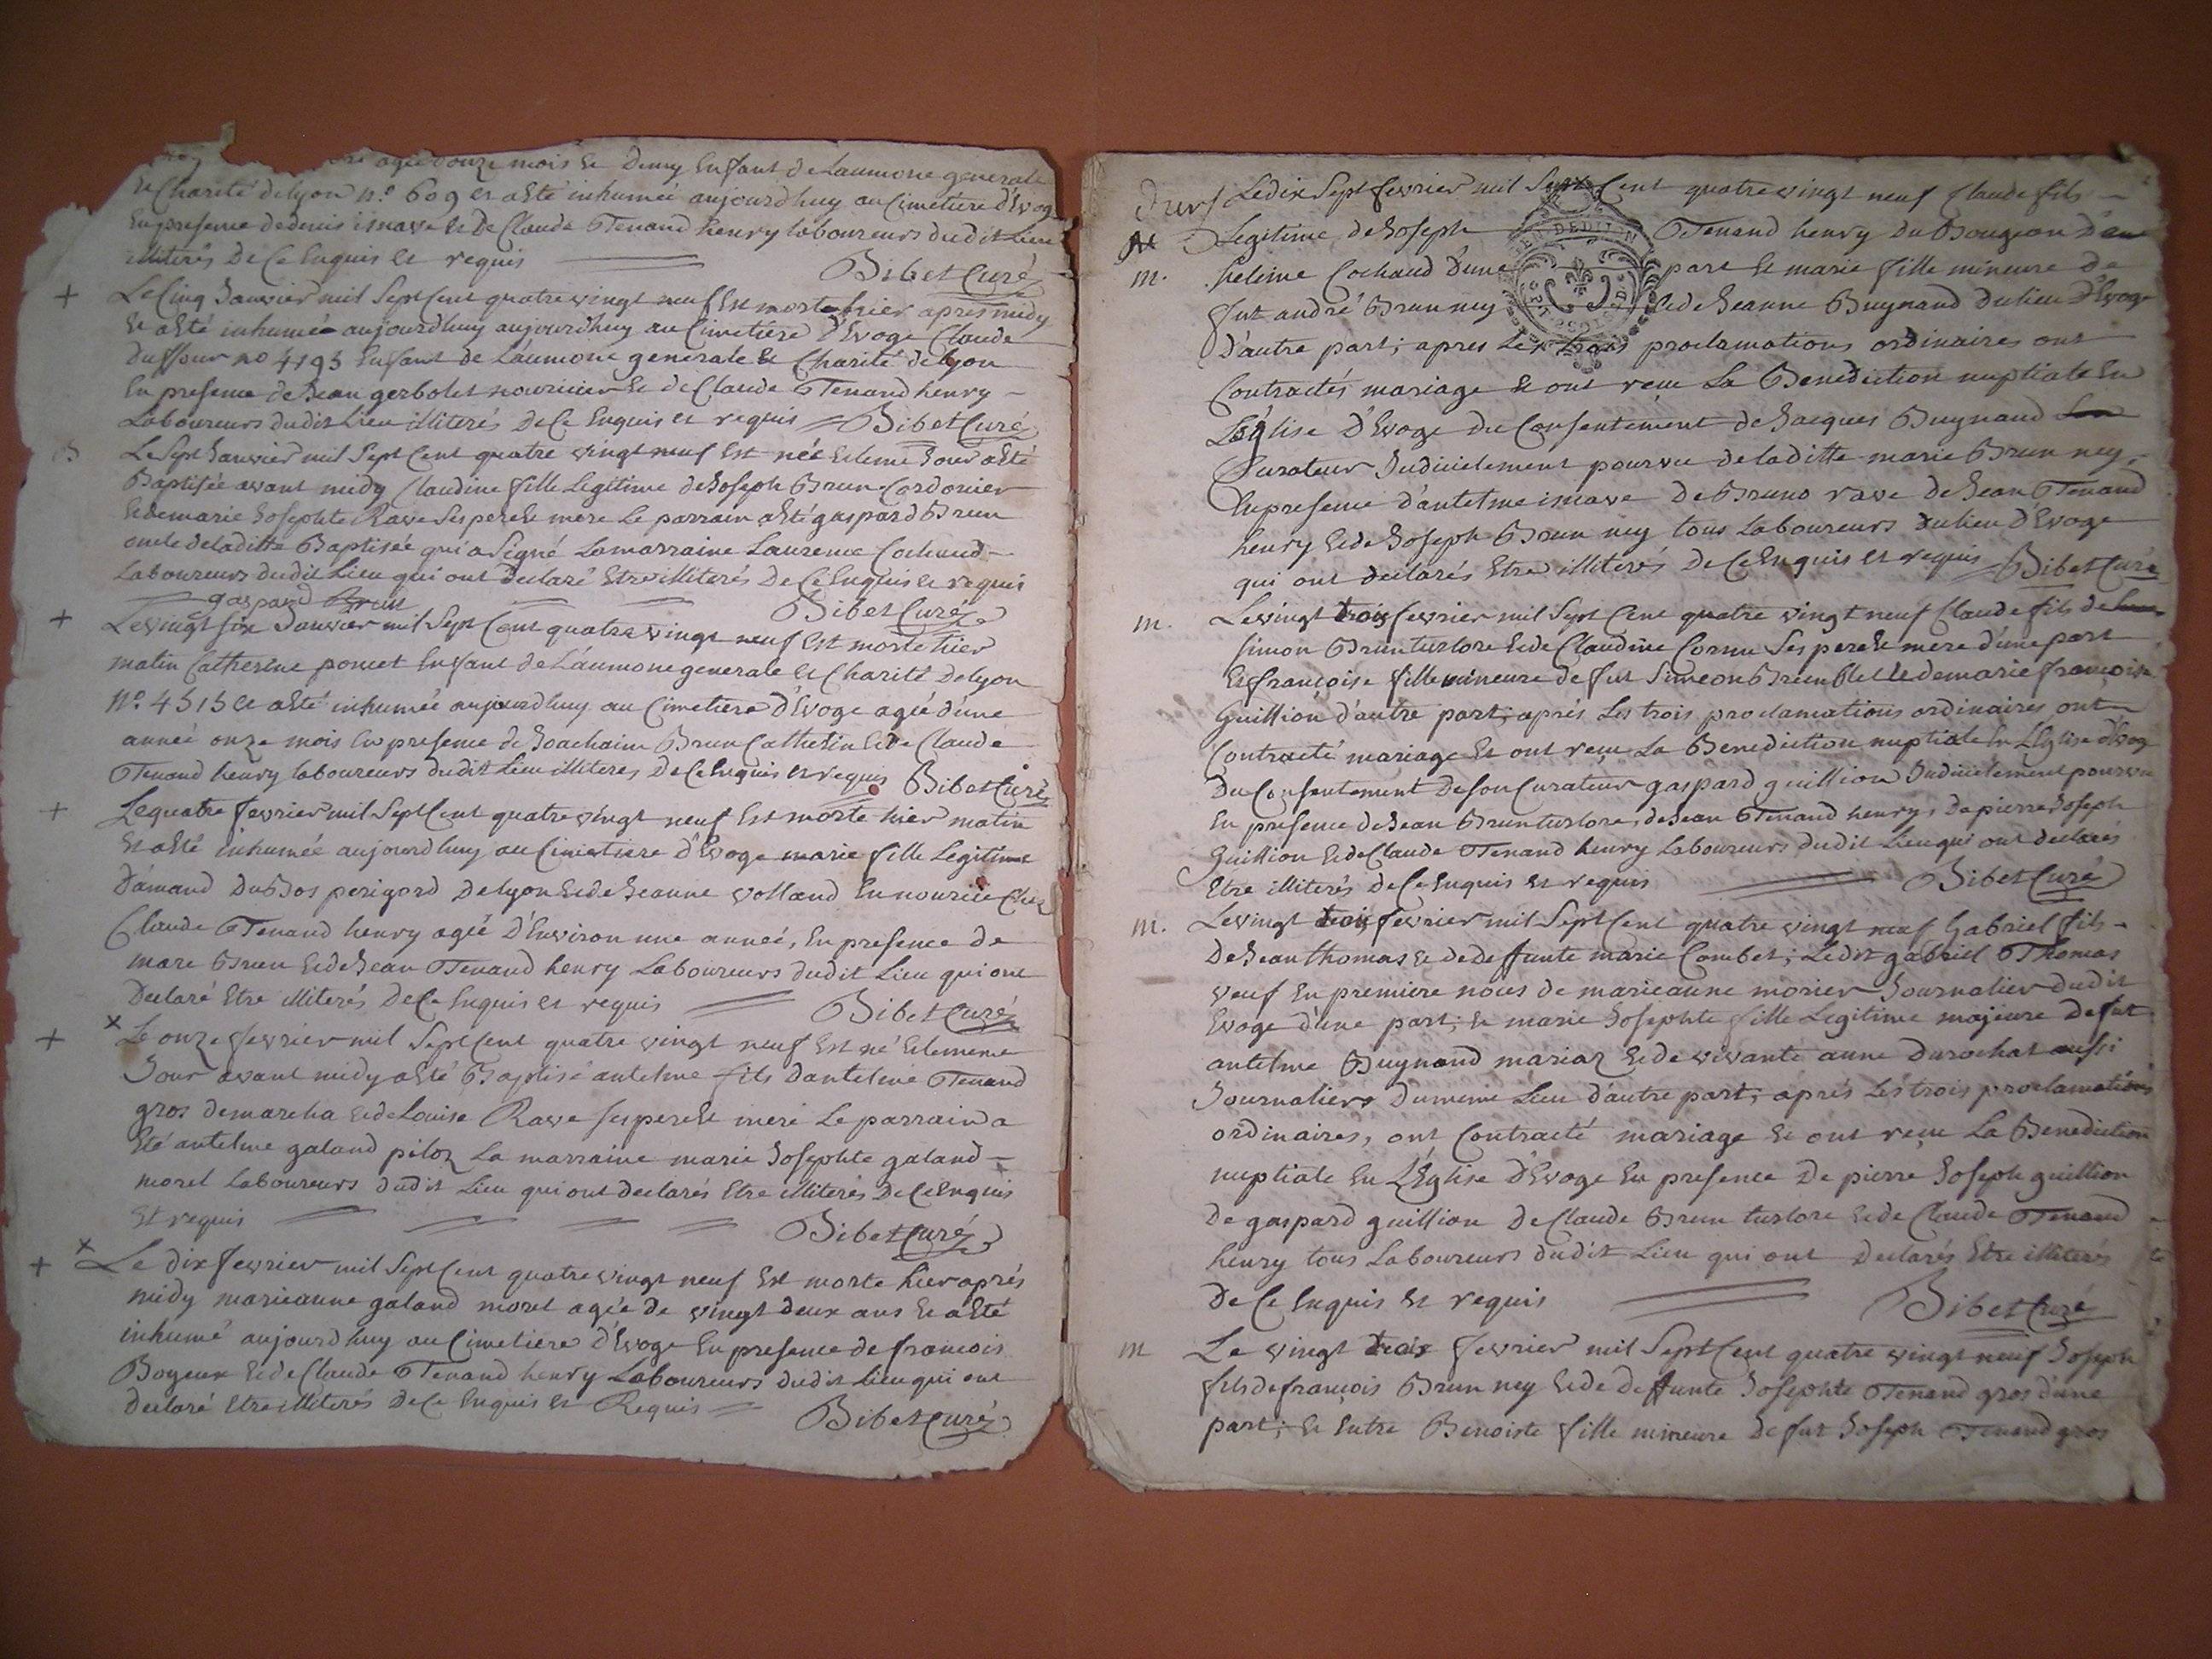 agée d'onze mois et demy Enfant de Laumone generale
et Charité de lyon n.º 609 et a Eté inhumée aujourdhuy au Cimetiere d'Evoge
En presence de denis ismave et De Claude Tenand henry laboureurs dudit Lieu
illiterés De Ce Enquis et requis Bibet Curé
+ Le Cinq Janvier mil Sept Cent quatre vingt neuf Est morte hier apres midy
et a Eté inhumée aujourdhuy aujourdhuy au Cimetiere d'Evoge Claude
Duffour no 4193 Enfant de L'aumone generale et Charité de lyon
En presence de Jean gerbolet nouricier et de Claude Tenand henry
Laboureurs dudit Lieu illiterés De Ce Enquis et requis Bibet Curé
B Le Sept Janvier mil Sept Cent quatre vingt neuf Est née et le me Jour a Eté
Baptisée avant midy Claudine fille Legitime de Joseph Brun Cordonier
et de marie Josephte Rave Ses pere et mere Le parrain a Eté gaspard Brun
oncle de laditte Baptisée qui a Signé La marraine Laurence Cochaud
Laboureurs dudit Lieu qui ont declaré Etre illiterés De Ce Enquis et requis
gaspard Brun Bibet Curé
+ Le vingt six Janvier mil Sept Cent quatre vingt neuf Est morte hier
matin Catherine poncet Enfant de L'aumone generale et Charité de lyon
N.º 4515 et a Eté inhumée aujourdhuy au Cimetiere d'Evoge agée d'une
année onze mois En presence de Joachaim Brun Cathetin et de Claude
Tenand henry laboureurs dudit Lieu illiteres De Ce Enquis et requis Bibet Curé
+ Le quatre fevrier mil Sept Cent quatre vingt neuf Est morte hier matin
et a Eté inhumée aujourdhuy au Cimetiere d'Evoge marie fille Legitime
D'amand DuBos perigord De lyon et de Jeanne volland En nourice Chez
Claude Tenand henry agée D'Environ une année, En presence De
marc Brun et de Jean Tenand henry Laboureurs dudit Lieu qui ont
Declaré Etre illiterés De Ce Enquis et requis Bibet Curé
+ x Le onze fevrier mil Sept Cent quatre vingt neuf Est né et le meme
Jour avant midy a Eté Baptisé antelme fils Dantelme Tenand
gros demarcha et de Louise Rave Ses pere et mere Le parrain a
Eté antelme galand piloz La marraine marie Josephte galand
morel Laboureurs dudit Lieu qui ont declarés Etre illiterés De Ce Enquis
Et requis Bibet Curé
+ x Le dix fevrier mil Sept Cent quatre vingt neuf Est morte hier aprés
midy marieanne galand morel agée de vingt deux ans et a Eté
inhumé aujourdhuy au Cimetiere d'Evoge En presence de francois
Boyeux et de Claude Tenand henry Laboureurs dudit Lieu qui ont
declaré Etre illiterés De Ce Enquis et Requis Bibet Curé
Le dix Sept fevrier mil Sept Cent quatre vingt neuf Claude fils
Legitime de Joseph Tenand henry Du Bougeon d'
m. heleine Cochaud D'une part et marie fille mineure de
fut andré Brun ney et de Jeanne Buynand Du lieu D'Evoge
D'autre part; apres Les trois proclamations ordinaires ont
Contractés mariage et ont reçu La Benediction nuptiale En
L'Eglise D'Evoge Du Consentement de Jacques Buynand
Curateur Judicielement pourvu de laditte marie Brun ney,
En presence d'antelme ismave De Bruno rave de Jean Tenand
henry et de Joseph Brun ney tous Laboureurs du lieu D'Evoge
qui ont declarés Etre illiterés De Ce Enquis et requis Bibet Curé
m. Le vingt trois fevrier mil Sept Cent quatre vingt neuf Claude fils de
simon Brun turlore et de Claudine Cornu Ses pere et mere d'une part
Et françoise fille mineure de fut Simeon Brun Blet et de marie françoise
Guillion d'autre part; aprés Les trois proclamations ordinaires ont
Contracté mariage Et ont reçu La Benediction nuptiale En L'Eglise d'Evoge
Du Consentement De son Curateur gaspard guillion Judicielement pourvu
En presence de Jean Brun turlore, de Jean Tenand henry, De pierre Joseph
Guillion et de Claude Tenand henry Laboureurs dudit Lieu qui ont declarés
Etre illiterés De Ce Enquis et requis Bibet Curé
m. Le vingt trois fevrier mil Sept Cent quatre vingt neuf Gabriel fils
De Jean thomas et de deffunte marie Combet; Ledit gabriel Thomas
veuf En premiere noces de marieanne morier Journalier dudit
Evoge d'une part; et marie Josephte fille Legitime majeure De fut
antelme Buynand mariaz et de vivante anne Durochat aussi
Journaliers Du meme Lieu d'autre part; aprés Les trois proclamations
ordinaires, ont Contracté mariage et ont reçu La Benediction
nuptiale En L'Eglise d'Evoge En presence De pierre Joseph guillion
De gaspard guillion De Claude Brun turlore et de Claude Tenand
henry tous Laboureurs dudit Lieu qui ont Declarés Etre illiterés
De Ce Enquis et requis Bibet Curé
m Le vingt trois fevrier mil Sept Cent quatre vingt neuf Joseph
fils de françois Brun ney et de Deffunte Josephte Tenand gros d'une
part; et Entre Benoiste fille mineure De fut Joseph Tenand gros